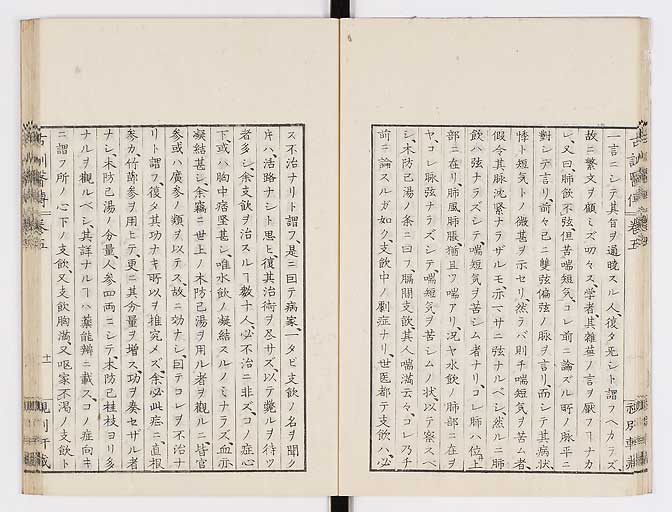 一言ニシテ其旨ヲ通曉スル人ハ復タ先シト謂フヘカラズ
故ニ繁文ヲ顧ミズ叨々ス学者其雑蕪ノ言ヲ厭フヿナカ
レ又曰肺飲不弦但苦喘短気コレ前ニ論ズル所ノ脉平ニ
對シテ言リ前々已ニ雙弦偏弦ノ脉ヲ言リ而シテ其病状
悸ト短気トノ微甚ヲ示セリ然ラバ則チ喘短気ヲ苦ム者
假令其脉沈緊ナラザルモ亦一サニ弦ナルベシ然ルニ肺
飲ハ弦ナラズシテ喘短気ヲ苦シム者ナリコレ肺ハ位上
部ニ在リ肺風肺脹猶且ツ喘アリ况ヤ水飲ノ肺部ニ在ヲ
ヤコレ脉弦ナラズシテ喘短気ヲ苦シムノ状以テ察スベ
シ木防己湯ノ条ニ曰フ膈間支飲其人喘満云々コレ乃チ
前ニ論スルガ如ク支飲中ノ劇症ナリ世医都テ支飲ハ必
ス不治ナリト謂フ是ニ囙テ病家一タビ支飲ノ名ヲ聞ク
片ハ活路ナシト思ヒ復其治術ヲ尽サズ以テ斃ルヲ待ツ
者多シ余支飲ヲ治スルヿ数十人必不治ニ非ズコノ症心
下或ハ胸中痞堅甚シ唯水飲ノ凝結スルノミナラズ血亦
凝結甚シ余竊ニ世上ノ木防己湯ヲ用ル者ヲ觀ルニ皆官
参或ハ廣参ノ類ヲ以テス故ニ功ナシ囙テコレヲ不治ナ
リト謂フ復タ其功ナキ所以ヲ推究メズ余必此症ニ直根
参カ竹節参ヲ用ヒテ更ニ其分量ヲ増ス功ヲ奏セザル者
ナシ木防己湯ノ分量人参四両ニシテ木防己桂枝ヨリ多
ナルヲ觀ルベシ其詳ナルヿハ薬能辨ニ載スコノ症向キ
ニ謂フ所ノ心下ノ支飲又支飲胸満又嘔家不渇ノ支飲ト
古訓醫傳
卷五
十一